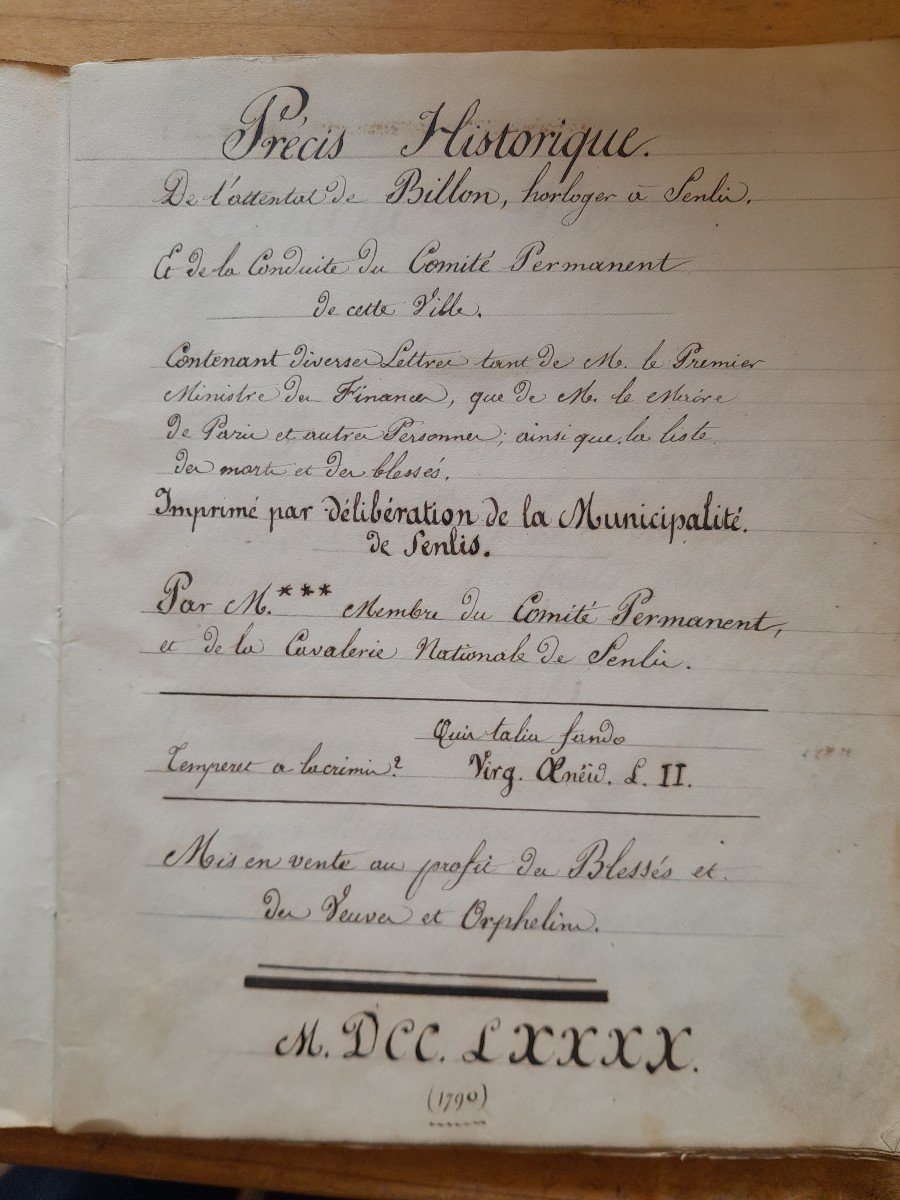 Précis Historique.
De l'attentat de Billon, horloger à Senlis.
Et de la Conduite du Comité Permanent
de cette Ville.
Contenant diverses Lettres tant de M. le Premier
Ministre des Finances, que de M. le Maire
de Paris et autres Personnes; ainsi que la liste
des morts et des blessés.
Imprimé par délibération de la Municipalité.
de Senlis.
Par M.*** Membre du Comité Permanent,
et de la Cavalerie Nationale de Senlis.
Quis talia fando
Temperet a lacrimis? Virg. Æneïd. L. II.
Mis en vente au profit des Blessés et
des Veuves et Orphelins.
M. DCC. LXXXX.
(1790)